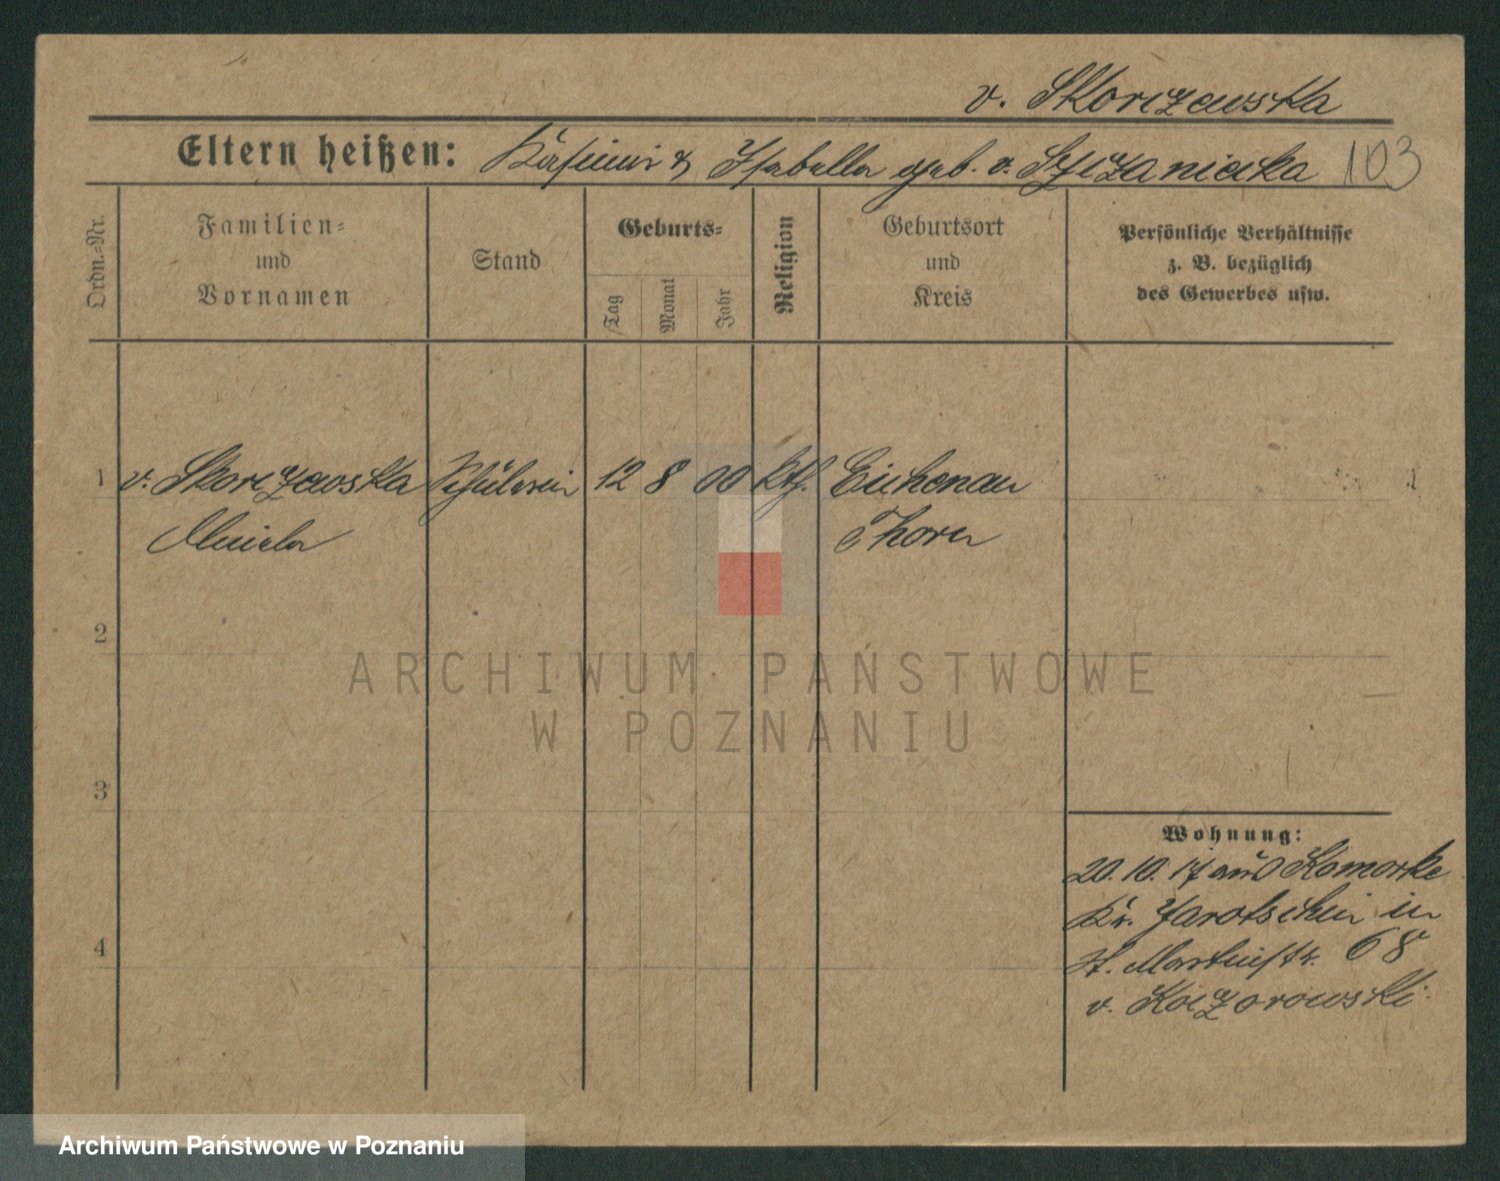 v. Skorczewska
Eltern heißen: Kasimir & Isabella geb. v. Szczaniecka 103
Ordn.-Nr.
Familien-
und
Vornamen
Stand
Geburts-
Tag
Monat
Jahr
Religion
Geburtsort
und
Kreis
Persönliche Verhältnisse
z. B. bezüglich
des Gewerbes usw.
1 v. Skorczewska Schülerin 12 8 00 kth. Eichenau
Thorn
2
3
4
Wohnung:
20. 10. 17 aus Komorke
Kr. Jarotschin in
St. Martinstr. 68
v. Koczorowski
ARCHIWUM PAŃSTWOWE
W POZNANIU
Archiwum Państwowe w Poznaniu